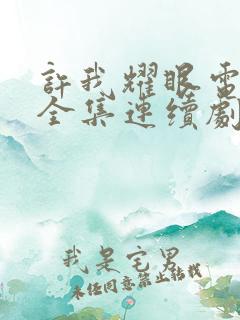 許我耀眼電
全集連續劇
我是宅男
未经同意禁止转载